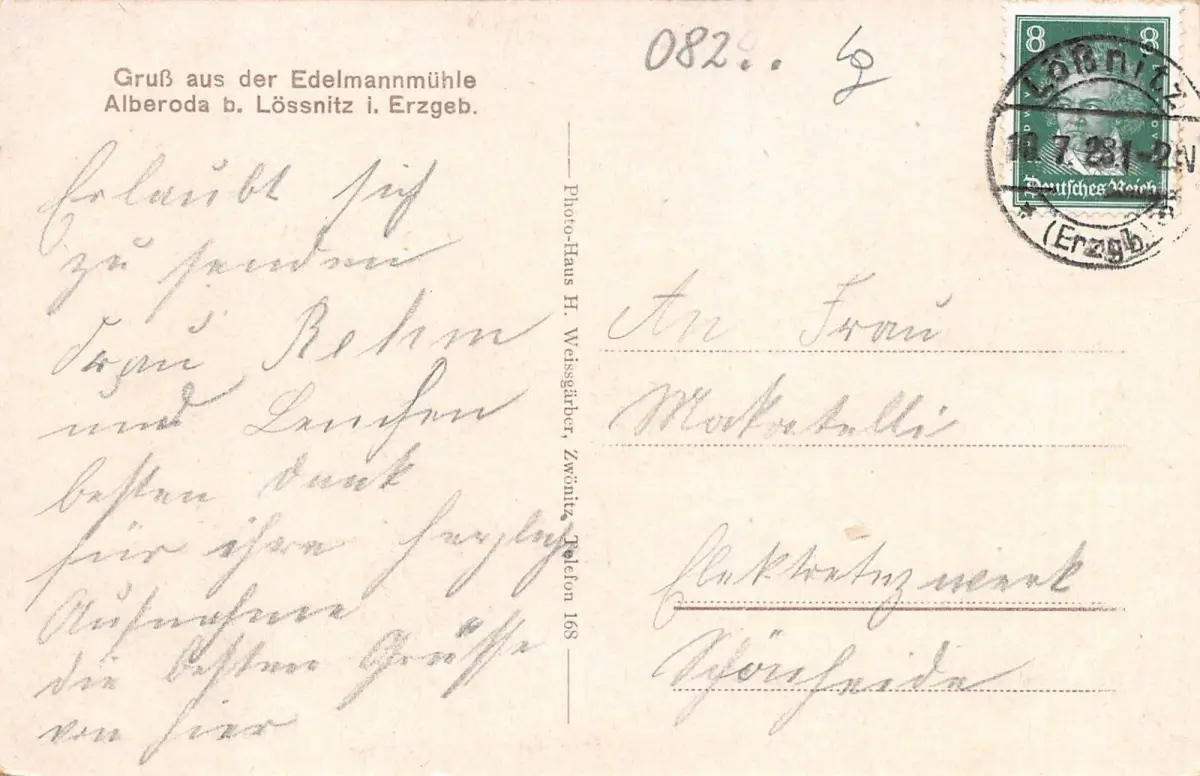 Gruß aus der Edelmannmühle
Alberoda b. Lössnitz i. Erzgeb.
Erlaubt sich
zu senden
Frau Rehm
und Lenchen
besten Dank
für ihre herzliche
Aufnahme
die besten Grüsse
von hier
Photo-Haus H. Weissgärber, Zwönitz, Telefon 168
082..
8 8
Deutsches Reich
Lößnitz
7. 28. 1-2 N
(Erzgb.)
An Frau
Makatelli
Schönheide